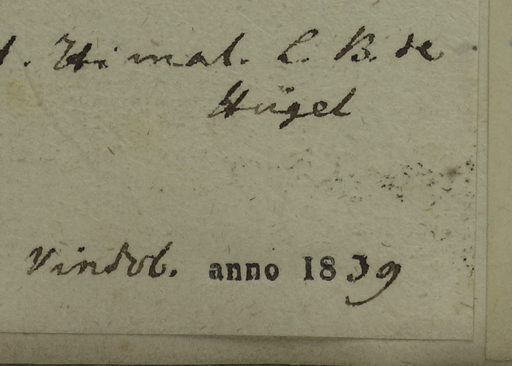 . Himal. L. B. de
Hügel
Vindob. anno 1839